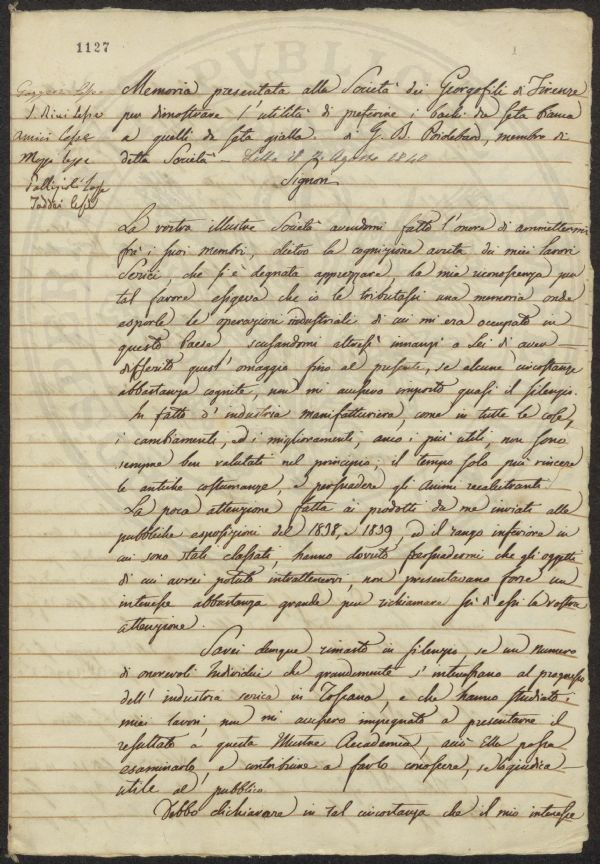 1127
1
Memoria presentata alla Società dei Georgofili di Firenze
per dimostrare l'utilità di preferire i bachi da seta bianca
a quelli da seta gialla di G. B. membro di
detta Società - Letta il Agosto 1840
Signori
L. Rini Lesse
Amici Lesse
Mazzi Lesse
Taddei Lesse
La vostra illustre Società avendomi fatto l'onore di ammettermi
frà i suoi membri, dietro la cognizione avuta dei miei lavori
Serici, che si è degnata apprezzare, la mia riconoscenza per
tal favore esigeva che io le tributassi una memoria onde
esporle le operazioni industriali di cui mi era occupato in
questo Paese scusandomi altresì innanzi a Lei di aver
differito quest'omaggio fino al presente, se alcune circostanze
abbastanza cognite, non mi avessero imposto quasi il silenzio.
In fatto d'industria manifatturiera, come in tutte le cose,
i cambiamenti, ed i miglioramenti, anco i più utili, non sono
sempre ben valutati nel principio; il tempo solo può vincere
le antiche costumanze, e persuadere gli animi recalcitranti
La poca attenzione fatta ai prodotti da me inviati alle
pubbliche esposizioni del 1838, e 1839, ed il rango inferiore in
cui sono stati classati, hanno dovuto persuadermi che gli oggetti
di cui avrei potuto intrattenervi, non presentavano forse un
interesse abbastanza grande per richiamare su di essi la vostra
attenzione.
Sarei dunque rimasto in silenzio, se un numero
di onorevoli Individui che grandemente s'interessano al progresso
dell'industria serica in Toscana, e che hanno studiato i
miei lavori, non mi avessero impegnato a presentarne il
resultato a questa Illustre Accademia, acciò Ella possa
esaminarlo, e contribuire a farlo conoscere, se lo giudica
utile al pubblico
Debbo dichiarare in tal circostanza che il mio interesse